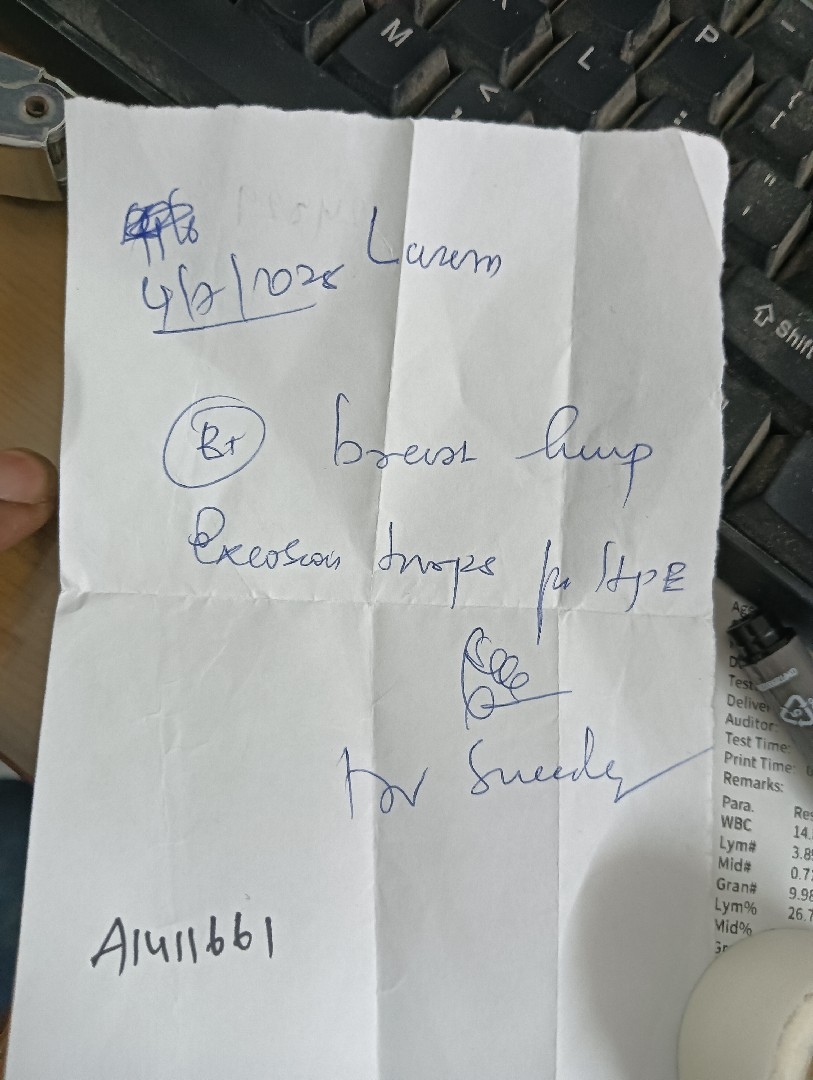 4/2/2025 Laxem
Rt breast lump
Excision biopsy for HPE
Dr
A1411661
M
L
P
Shift
Test
Deliver
Auditor:
Test Time:
Print Time:
Remarks:
Para. Res
WBC 14.
Lym# 3.8
Mid# 0.7
Gran# 9.98
Lym% 26.7
Mid%